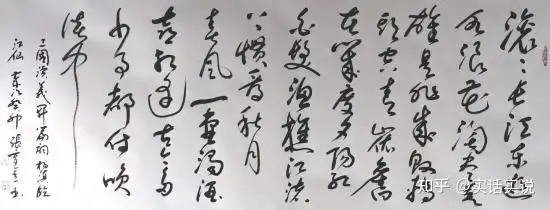 滚滚长江东逝
水浪花淘尽英
雄是非成败转
头空青山依旧
在几度夕阳红
白发渔樵江渚
上惯看秋月
春风一壶浊酒
喜相逢古今多
少事都付笑
谈中
三国演义开篇词杨慎临
江仙 癸卯 张 书
知乎 @实话实说